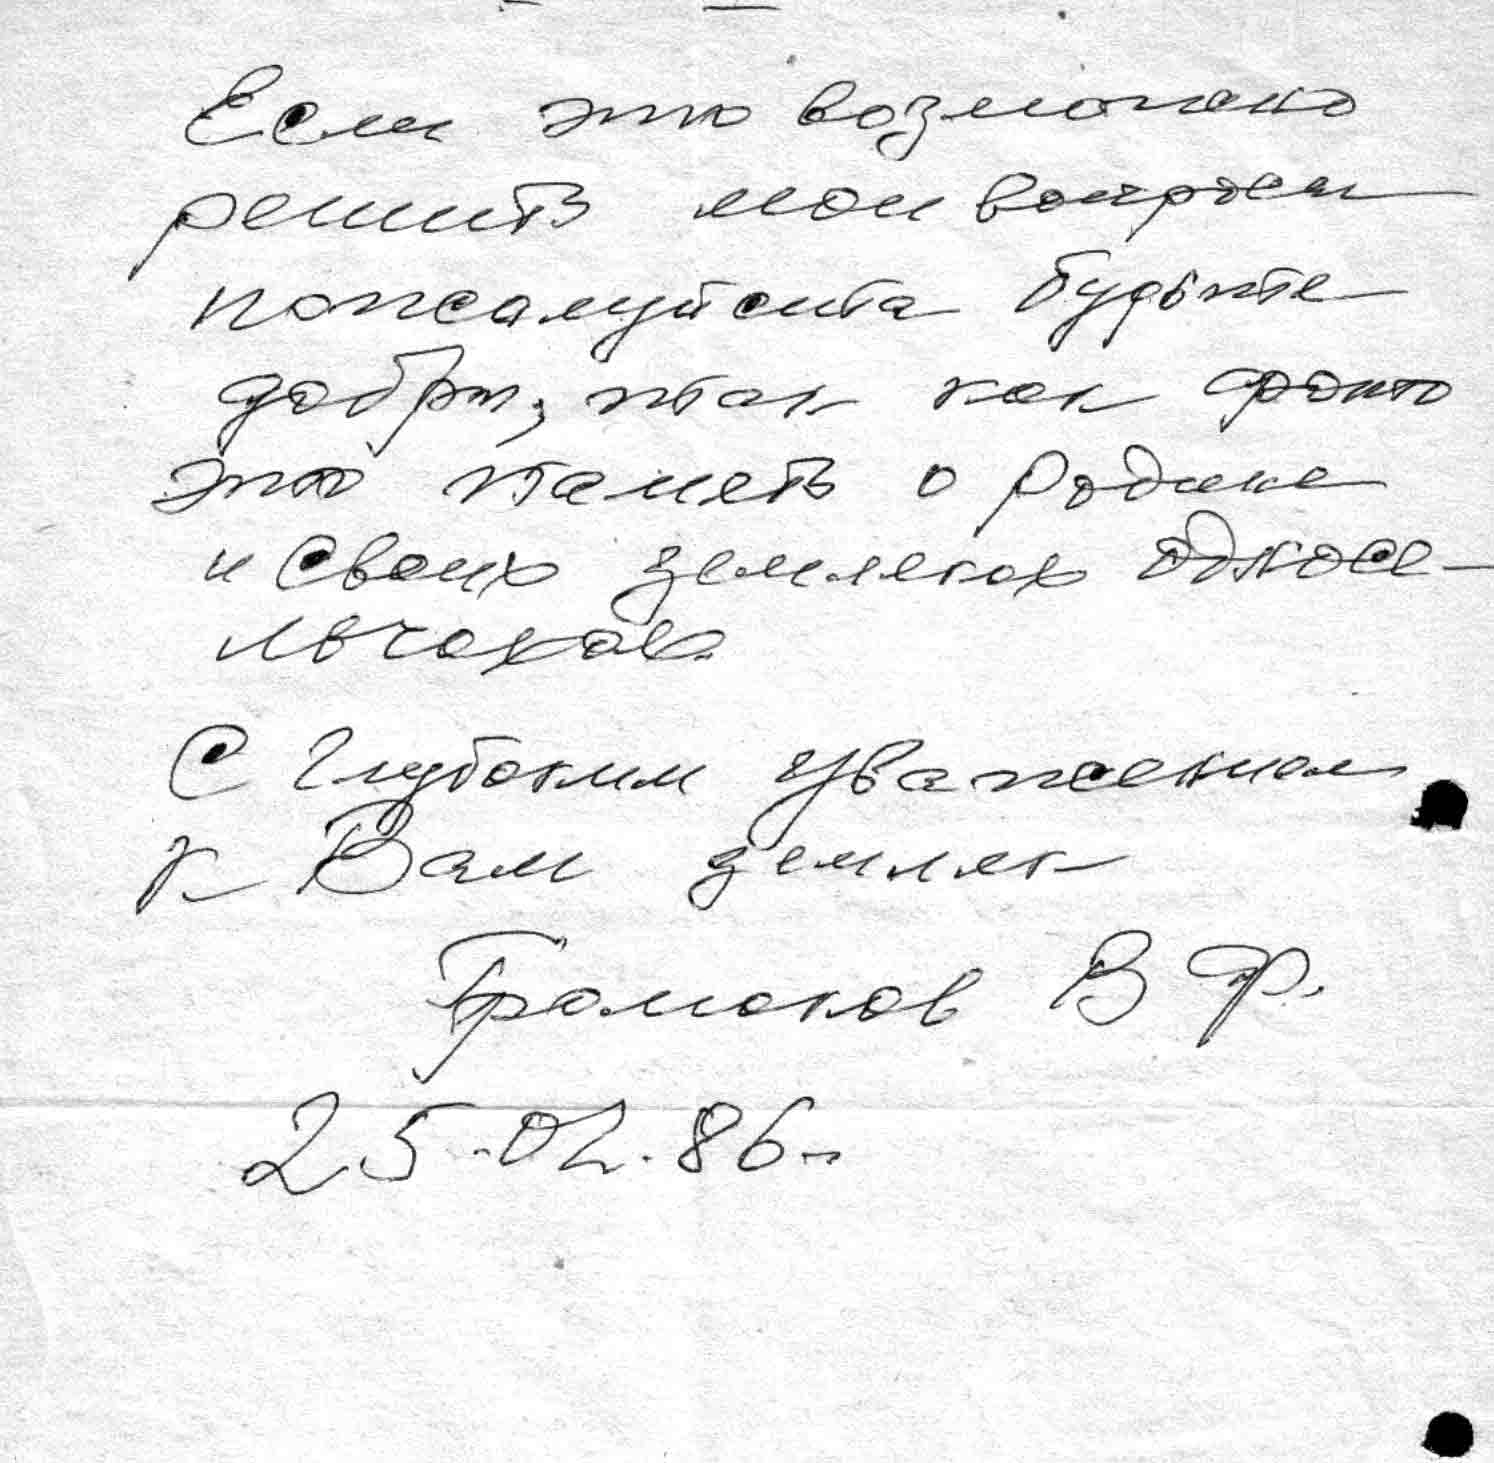 Если это возможно
решить мои вопросы
пожалуйста будьте
добры, так как фото
это память о Родине
и своих земляках односе-
льчанах.
С глубоким уважением
к Вам земляк
В Ф.
25.02.86г.